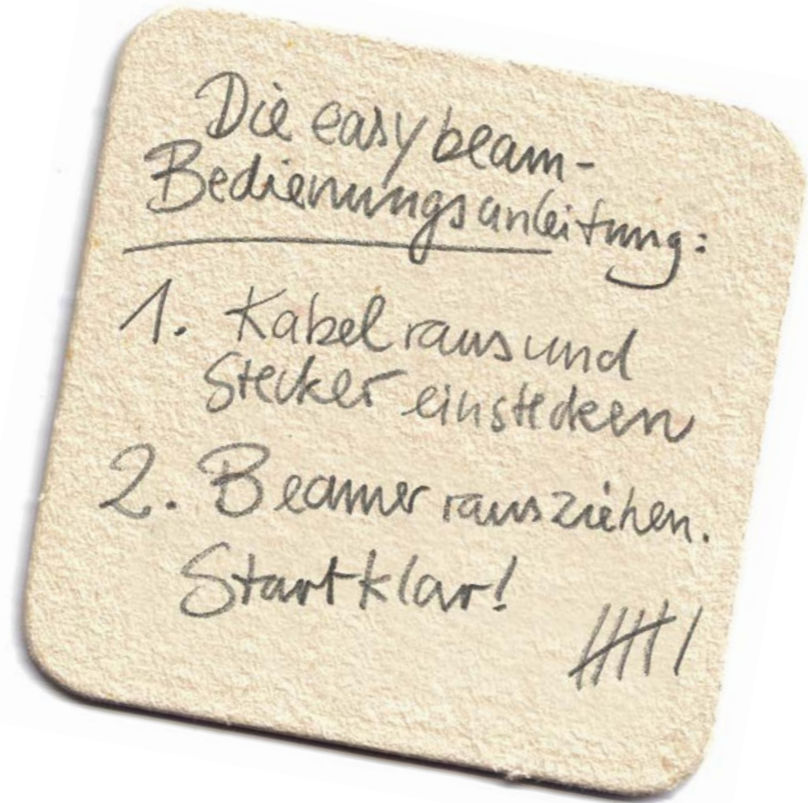 Die easybeam-
Bedienungsanleitung:
1. Kabel raus und
Stecker einstecken
2. Beamer rausziehen.
Startklar!